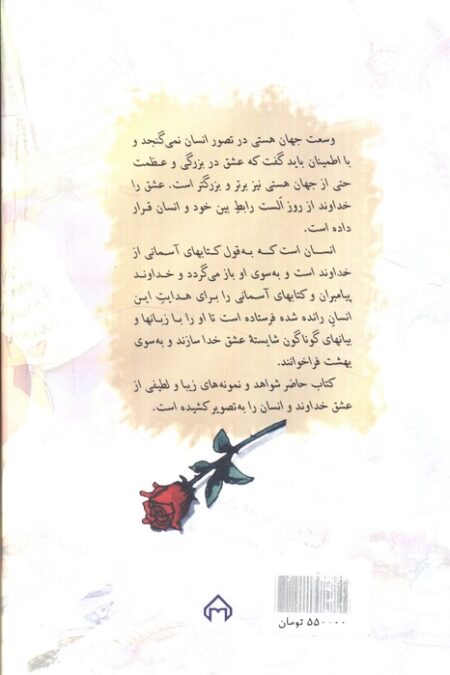 وسعت جهان هستی در تصور انسان نمی‌گنجد و
با اطمینان باید گفت که عشق در بزرگی و عظمت
حتی از جهان هستی نیز برتر و بزرگتر است. عشق را
خداوند از روز اَلست رابطِ بین خود و انسان قرار
داده است.
انسان است که به‌قول کتابهای آسمانی از
خداوند است و به‌سوی او باز می‌گردد و خداوند
پیامبران و کتابهای آسمانی را برای هدایتِ این
انسانِ رانده شده فرستاده است تا او را با زبانها و
بیانهای گوناگون شایستهٔ عشق خدا سازند و به‌سوی
بهشت فراخوانند.
کتاب حاضر شواهد و نمونه‌های زیبا و لطیفی از
عشق خداوند و انسان را به‌تصویر کشیده است.
۵۵۰۰۰۰ تومان